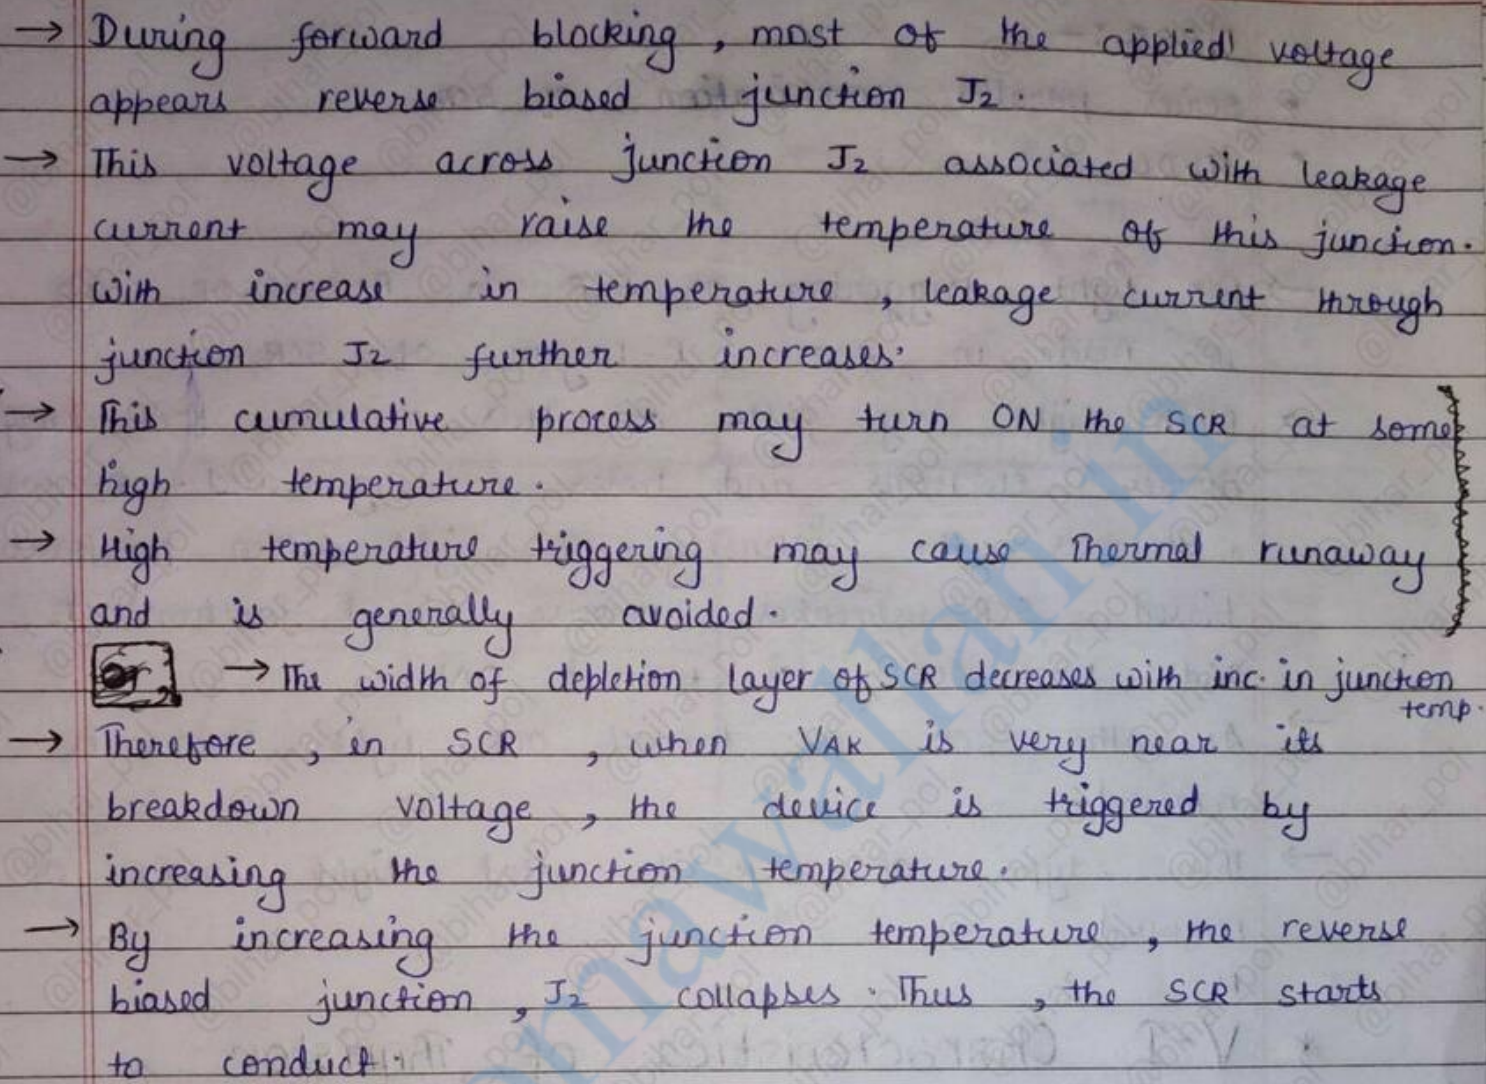 → During forward blocking, most of the applied voltage
appears reverse biased junction J2.
→ This voltage across junction J2 associated with leakage
current may raise the temperature of this junction.
With increase in temperature, leakage current through
junction J2 further increases.
→ This cumulative process may turn ON the SCR at some
high temperature.
→ High temperature triggering may cause Thermal runaway
and is generally avoided.
→ The width of depletion layer of SCR decreases with inc. in junction
temp.
→ Therefore, in SCR, when VAK is very near its
breakdown voltage, the device is triggered by
increasing the junction temperature.
→ By increasing the junction temperature, the reverse
biased junction, J2 collapses. Thus, the SCR starts
to conduct.